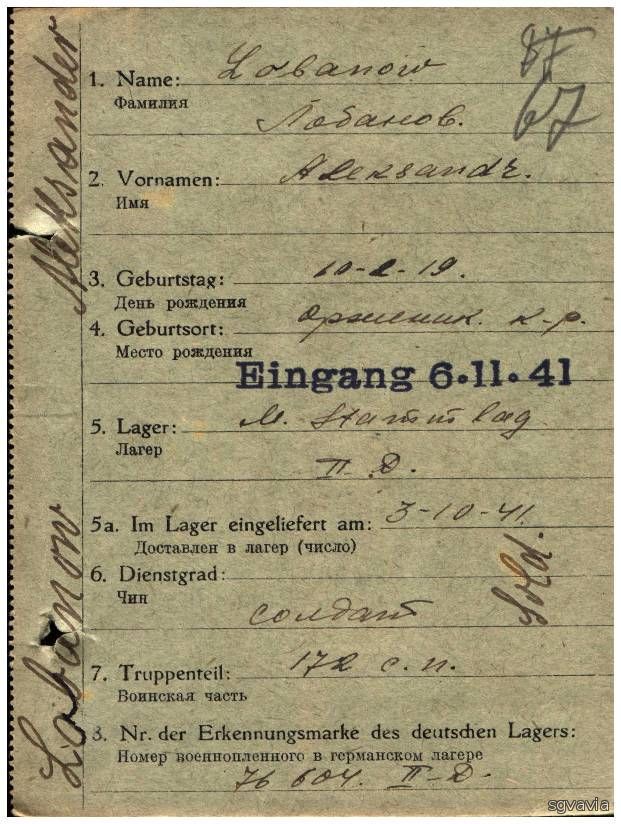 87
67
1. Name: Lobanow
Фамилия
Лобанов.
2. Vornamen: Aleksandr.
Имя
3. Geburtstag: 10-2-19.
День рождения
4. Geburtsort: оржений. к-р.
Место рождения
Eingang 6.11.41
5. Lager: M. Stammlag
Лагер
II-D.
5a. Im Lager eingeliefert am: 3-10-41.
Доставлен в лагер (число)
6. Dienstgrad:
Чин
солдат
Sold.
7. Truppenteil: 172 с.п.
Воинская часть
8. Nr. der Erkennungsmarke des deutschen Lagers:
Номер военнопленного в германском лагере
76 604. II-D.
Lobanow Aleksander
sgvavia